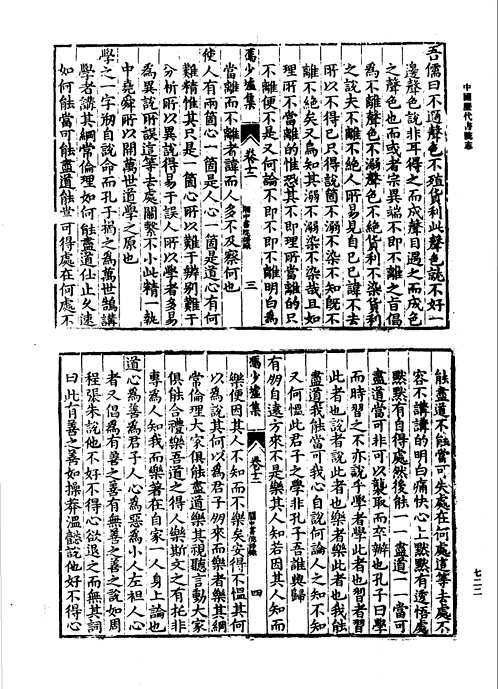 中國歷代書院志
吾儒曰不邇聲色不殖貨利此聲色說不好一
邊聲色說非耳得之而成聲目遇之而成色
之聲色也而或者宗異端不即不離之旨倡
為不離聲色不溺聲色不絕貨利不染貨利
之說夫不離不絕人所易見自己已諱不去
所以不得已只得說箇不溺不染不知既不
離不絕矣又烏知其溺不溺染不染哉且如
理所不當離的惟恐其不即理所當離的只
不離便不是又何論不即不即不離明白為
馮少墟集
卷十二
三
當離而不離者諱而人多不及察何也
使人有兩箇心一箇是人心一箇是道心有何
難精惟其只是一箇心所以難于辨別難于
分析所以異說得易于誤人所以學者多易
為異說所誤這等去處關繫不小此精一執
中堯舜所以開萬世道學之原也
學之一字朔自說命而孔子揭之為萬世鵠講
學者講其綱常倫理如何能盡道仕止久速
如何能當可能盡道能當可得處在何處不
能盡道不能當可失處在何處這等去處不
容不講講的明白痛快心上默默有透悟處
默默有自得處然後能一一盡道一一當可
盡道當可非可以襲取而卒辦也孔子曰學
而時習之不亦說乎學者學此者也習者習
此者也說者說此者也樂者樂此者也我能
盡道我能當可我心自說何論人之知不知
又何慍此君子之學非孔子吾誰與歸
有朋自遠方來不是樂其人知若因其人知而
馮少墟集
卷十二
四
樂便因其人不知而不樂矣安得不慍其何
以為說其何以為君子朋來而樂者樂其綱
常倫理大家俱能盡道樂其視聽言動大家
俱能合禮樂吾道之得人樂斯文之有托非
專為人知我而樂著在自家一人身上論也
道心為善為君子人心為惡為小人左袒人心
者又倡為有善之善有無善之善之說如周
程張朱說他不好不得心欲退之而無其詞
曰此有善之善如操莽溫懿說他好不得心
七二二